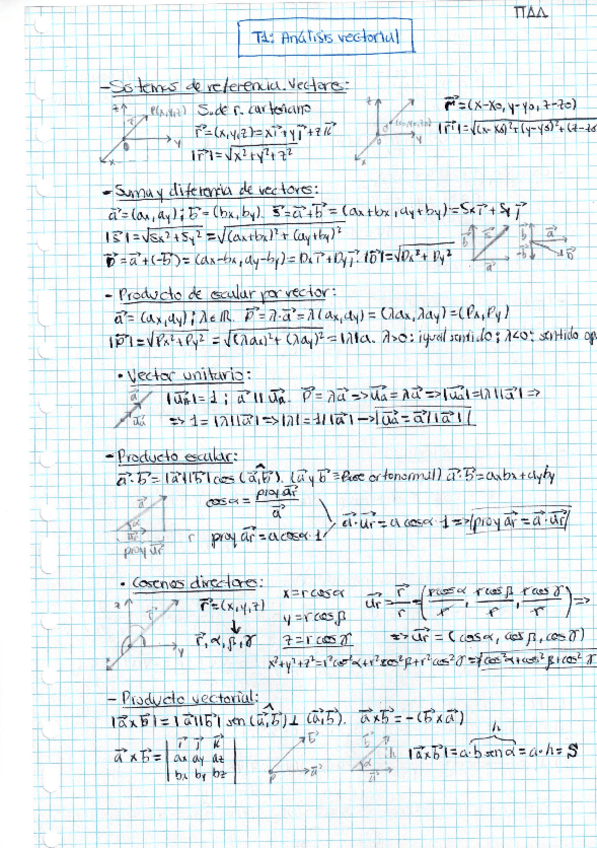 ΠΔΔ
T1: Análisis vectorial
- Sistemas de referencia. Vectores:
z P(x,y,z) S. de r. cartesiano
r⃗=(x,y,z)=xi⃗+yj⃗+zk⃗
|r⃗|=√x²+y²+z²
r⃗=(x-x0, y-y0, z-z0)
|r⃗|=√(x-x0)²+(y-y0)²+(z-z0
- Suma y diferencia de vectores:
a⃗=(ax,ay); b⃗=(bx,by). s⃗=a⃗+b⃗=(ax+bx, ay+by)=Sxi⃗+Syj⃗
|s⃗|=√Sx²+Sy²=√(ax+bx)²+(ay+by)²
D⃗=a⃗+(-b⃗)=(ax-bx, ay-by)=Dxi⃗+Dyj⃗. |D⃗|=√Dx²+Dy²
- Producto de escalar por vector:
a⃗=(ax,ay); λ∈ℝ. p⃗=λ·a⃗=λ(ax,ay)=(λax,λay)=(Px,Py)
|p⃗|=√Px²+Py²=√(λax)²+(λay)²=|λ||a. λ>0: igual sentido; λ<0: sentido op
• Vector unitario:
|u⃗a|=1; a⃗ || u⃗a. p⃗=λa⃗=>u⃗a=λa⃗=>|u⃗a|=|λ||a⃗|=>
=>1=|λ||a⃗|=>|λ|=1/|a⃗|->|u⃗a=a⃗/|a⃗||
- Producto escalar:
a⃗·b⃗=|a⃗||b⃗|cos(a⃗,b⃗). (a⃗ y b⃗=Base ortonormal) a⃗·b⃗=axbx+ayby
cosα=proy a⃗r/a⃗
proy a⃗r=acosα·1
a⃗·u⃗r=a cosα·1=>|proy a⃗r=a⃗·u⃗r|
proy u⃗r
• Cosenos directores:
r⃗=(x,y,z)
r,α,β,γ
x=rcosα
y=rcosβ
z=rcosγ
u⃗r=r⃗/r=(rcosα/r, rcosβ/r, rcosγ/r)=>
=>u⃗r=(cosα, cosβ, cosγ)
x²+y²+z²=r²cos²α+r²cos²β+r²cos²γ=>|cos²α+cos²β+cos²γ
- Producto vectorial:
|a⃗xb⃗|=|a⃗||b⃗|sen(a⃗,b⃗)⊥(a⃗,b⃗). a⃗xb⃗=-(b⃗xa⃗)
a⃗xb⃗=|i⃗ j⃗ k⃗|
ax ay az
bx by bz
h
|a⃗xb⃗|=a·b senα=a·h=S